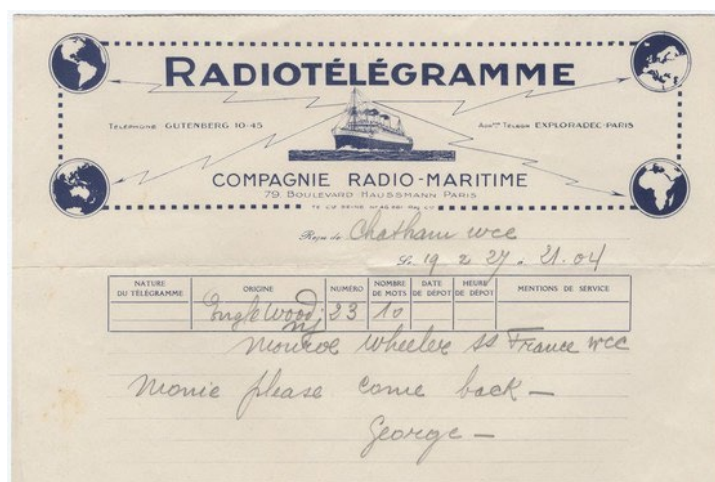 RADIOTÉLÉGRAMME
TÉLÉPHONE GUTENBERG 10-45
ADR^SSE TÉLÉGR EXPLORADEC-PARIS
COMPAGNIE RADIO-MARITIME
79, BOULEVARD HAUSSMANN PARIS
Reçu de Chatham wcc
Le 19 2 27. 21.04
NATURE DU TÉLÉGRAMME
ORIGINE
NUMÉRO
NOMBRE DE MOTS
DATE DE DÉPOT
HEURE DE DÉPOT
MENTIONS DE SERVICE
Inglewood nj 23 10
Monroe Wheeler ss France wcc
Monie please come back —
George —